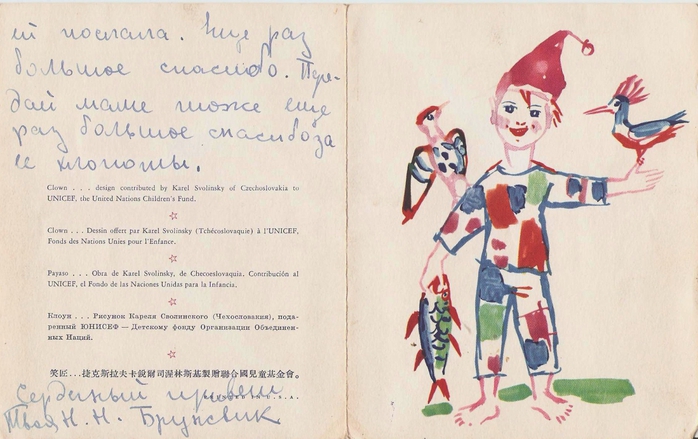 ей послала. Еще раз
большое спасибо. Пере-
дай маме тоже еще
раз большое спасибо за
ее хлопоты.
Clown . . . design contributed by Karel Svolinsky of Czechoslovakia to
UNICEF, the United Nations Children's Fund.
Clown . . . Dessin offert par Karel Svolinsky (Tchécoslovaquie) à l'UNICEF,
Fonds des Nations Unies pour l'Enfance.
Payaso . . . Obra de Karel Svolinsky, de Checoeslovaquia. Contribución al
UNICEF, el Fondo de las Naciones Unidas para la Infancia.
Клоун . . . Рисунок Кареля Сволинского (Чехословакия), пода-
ренный ЮНИСЕФ — Детскому фонду Организации Объединен-
ных Наций.
笑匠...捷克斯拉夫卡銳爾司渥林斯基製贈聯合國兒童基金會。
Сердечный привет
IN U.S.A.
Твоя Н. Н. Брунсвик